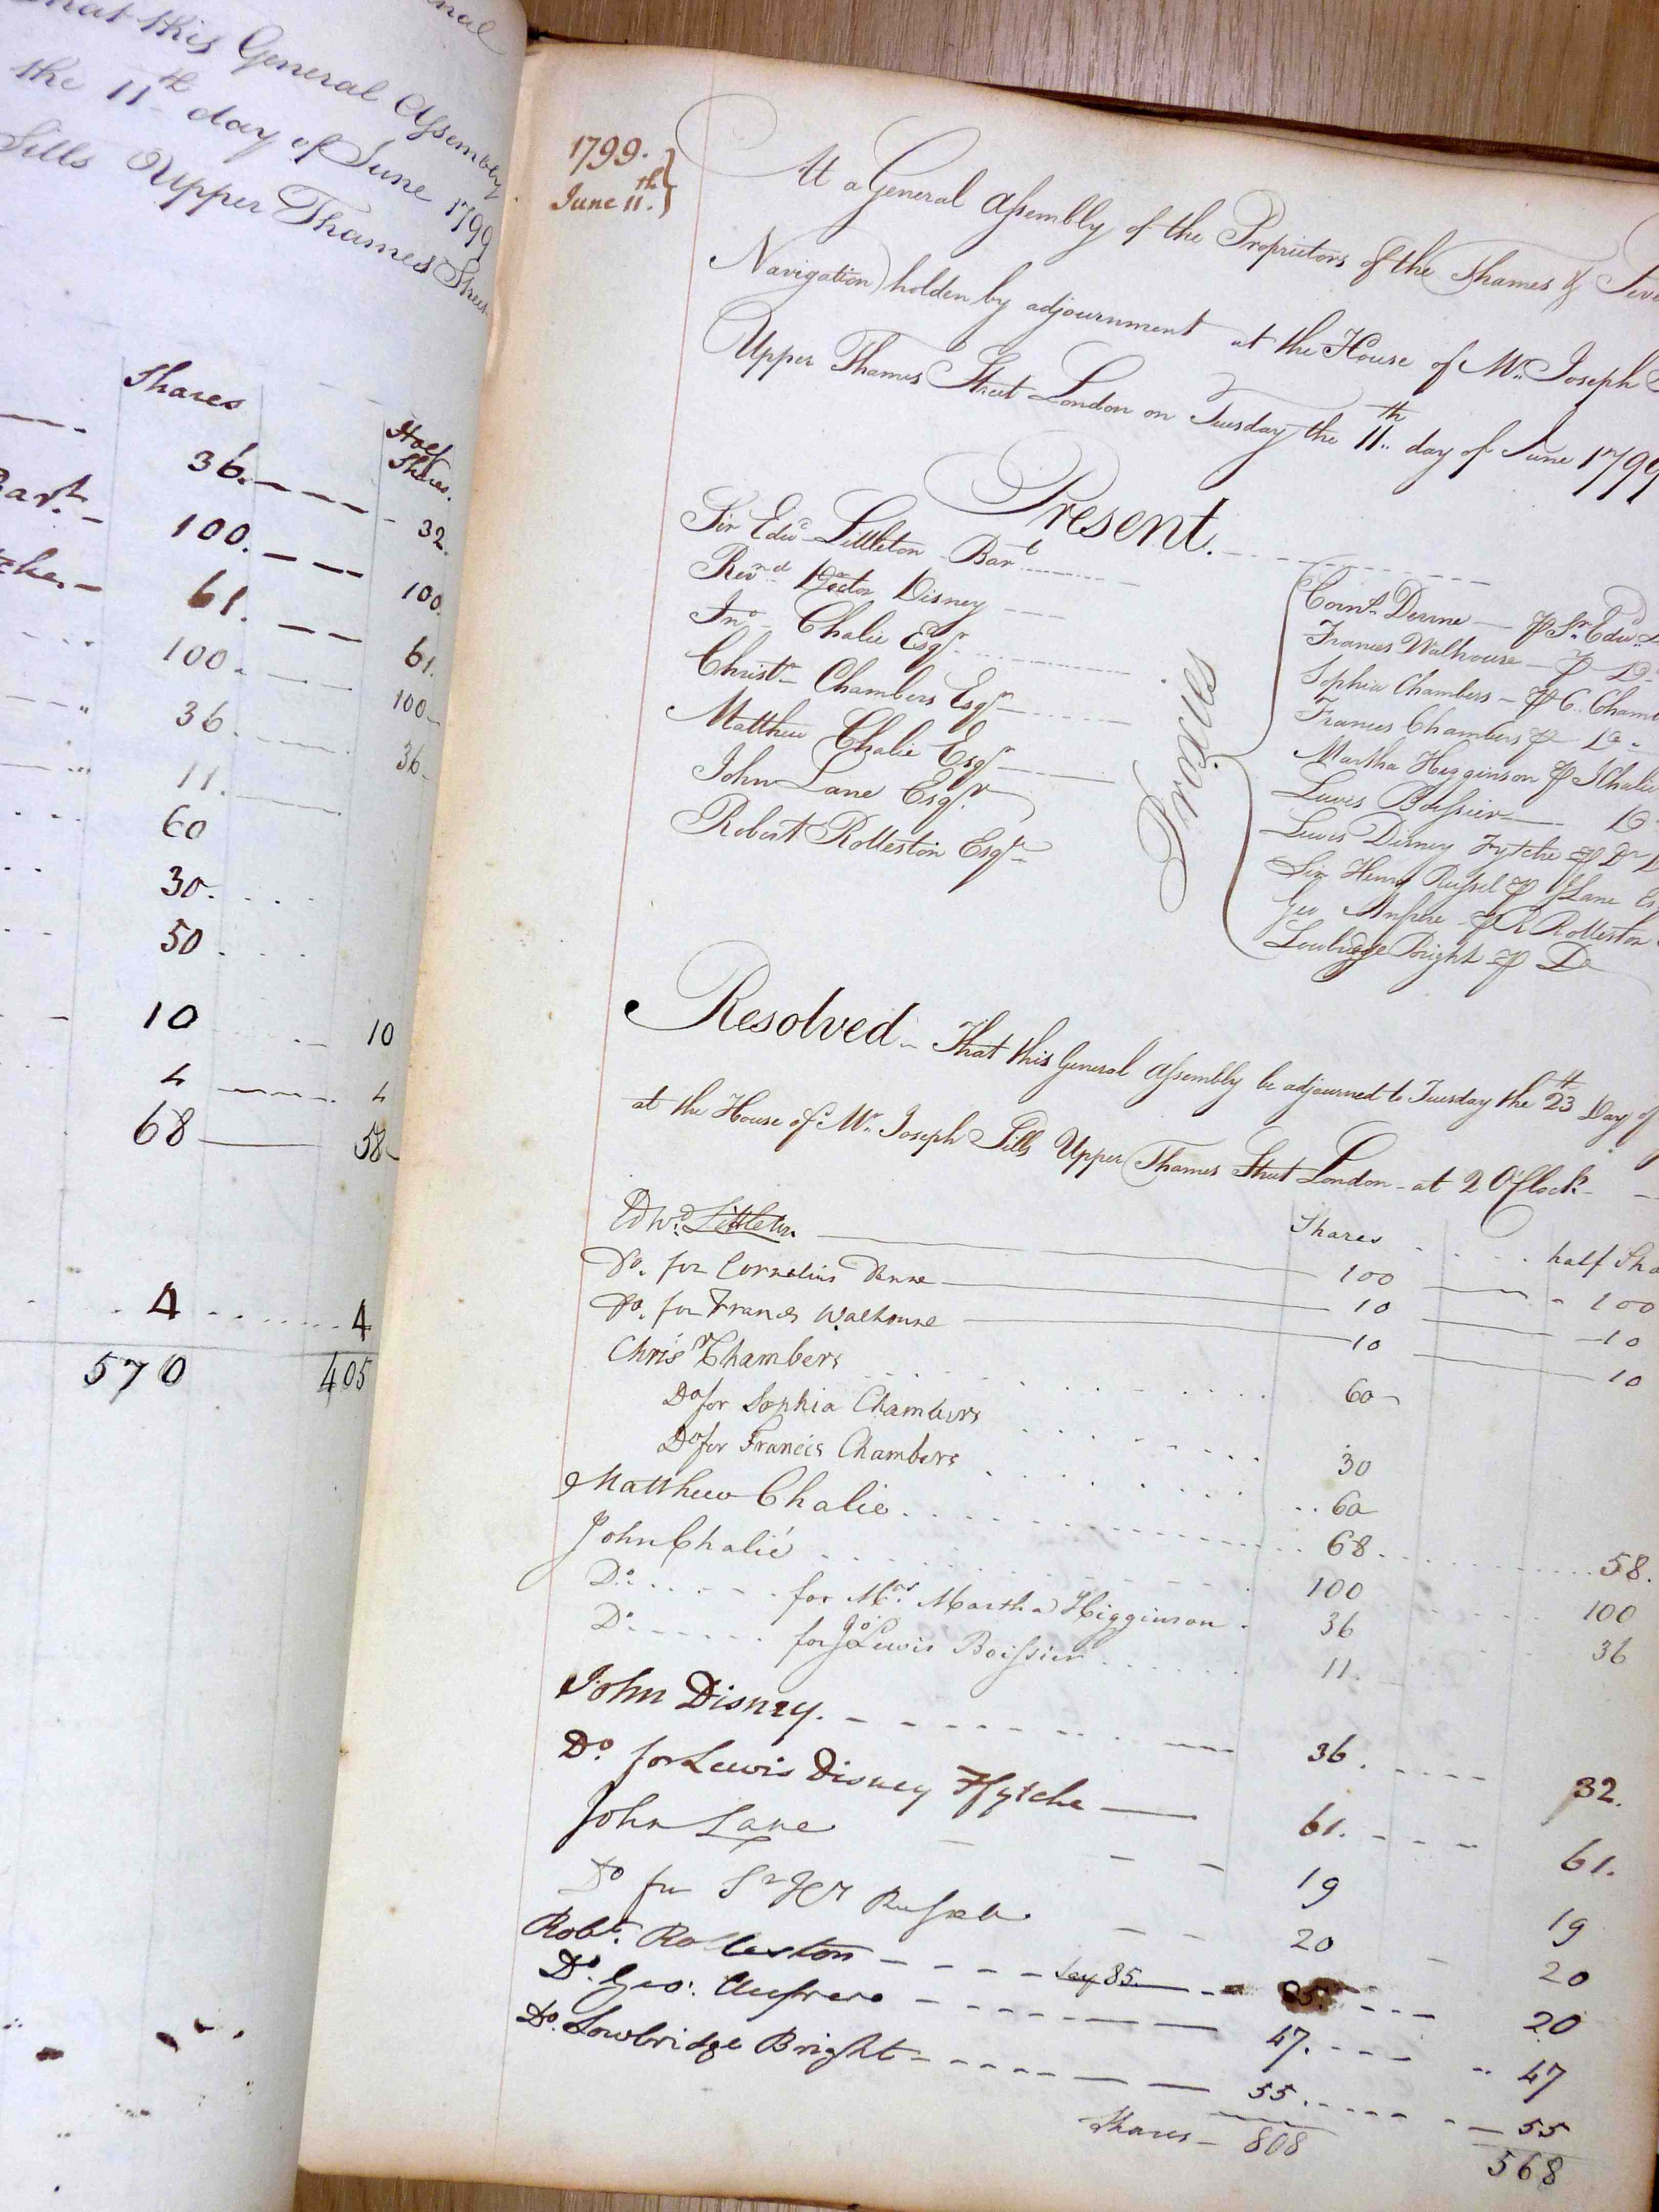 that this General Assembly
the 11th day of June 1799
Sills Upper Thames Street
Shares
Half Shares.
36. 32.
Bart. 100. 100.
61. 61.
100. 100
36. 36
11.
60
30.
50.
10 10
4 4
68 58
4 4
570 405
1799.
June 11th.
At a General Assembly of the Proprietors of the Thames &
Navigation holden by adjournment at the House of Mr. Joseph
Upper Thames Street London on Tuesday the 11th day of June 1799
Present.
Sir Edwd Littleton Bart
Revnd Doctor Disney
Jno Chalie Esqr
Christr Chambers Esqr
Matthew Chalie Esqr
John Lane Esqr
Robert Rolleston Esqr
Proxies
Corns. Denne P Sr. Edwd.
Frances Walhouse P Do.
Sophia Chambers P C. Chamb
Frances Chambers P Do
Martha Higginson P J Chalie
Lewis Boissier Do
Lewis Disney Fytche P Dr D
Sir Henry Russel P J Lane Es
Geo Aufrere P R Rolleston
Lowbridge Bright P Do
Resolved That this General Assembly be adjourned to Tuesday the 23d Day of
at the House of Mr. Joseph Sills Upper Thames Street London - at 2 O'Clock -
Shares half Sha
Edwd. Littleton 100 100
Do. for Cornelius Denne 10 10
Do. for Frances Walhouse 10 10
Chrisr Chambers 60
Do for Sophia Chambers 30
Do for Francis Chambers 60
Matthew Chalie 68 58.
John Chalié 100 100
Do. for Mrs. Martha Higginson 36 36
Do for Lewis Boissier 11.
John Disney. 36. 32.
Do. for Lewis Disney Ffytche 61. 61.
John Lane 19 19
Do for Sr Hy Russell 20 20
Robt. Rolleston say 85. 85. 20
Do. Geo: Aufrere 47. 47
Do. Lowbridge Bright 55. 55
Shares 808 568